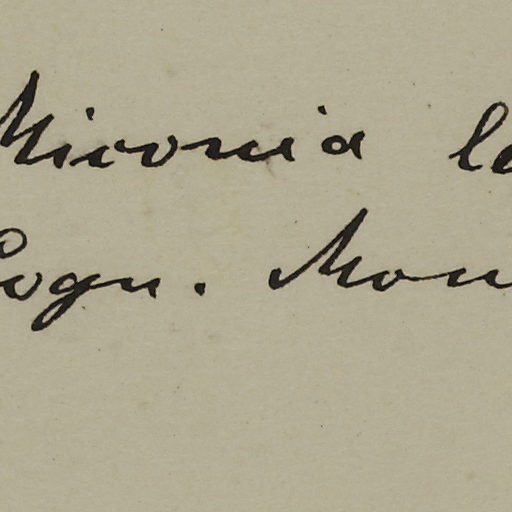 Miconia le
Cogn. Mon